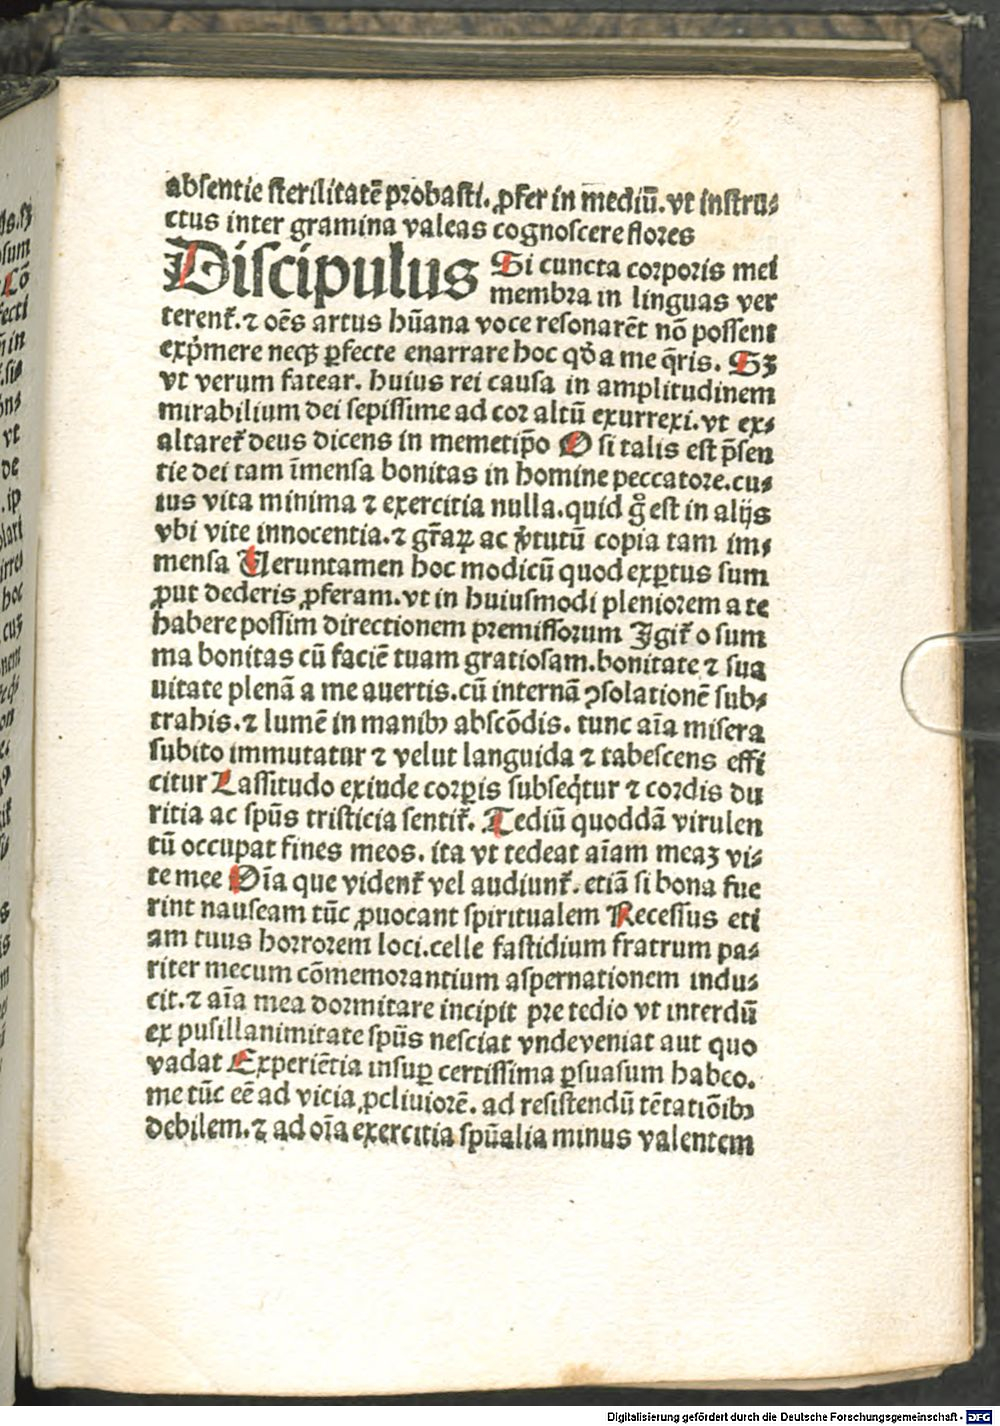 absentie sterilitatē probasti. ꝓfer in mediū. vt instru⸗
ctus inter gramina valeas cognoscere flores
Discipulus Si cuncta corporis mei
membra in linguas ver
terent᷑. ⁊ oēs artus hūana voce resonarēt nō possent
exp̄mere neqꝫ ꝑfecte enarrare hoc qd̄ a me q̄ris. Sꝫ
vt verum fatear. huius rei causa in amplitudinem
mirabilium dei sepissime ad cor altū exurrexi. vt ex⸗
altaret᷑ deus dicens in memetip̄o O si talis est p̄sen
tie dei tam īmensa bonitas in homine peccatore. cu⸗
ius vita minima ⁊ exercitia nulla. quid g̊ est in alijs
vbi vite innocentia. ⁊ gr̄aꝝ ac v̓tutū copia tam im⸗
mensa Ueruntamen hoc modicū quod exꝑtus sum
ꝓut dederis ꝓferam. vt in huiusmodi pleniorem a te
habere possim directionem premissorum Igit᷑ o sum
ma bonitas cū faciē tuam gratiosam. bonitate ⁊ sua
uitate plenā a me auertis. cū internā ꝯsolationē sub⸗
trahis. ⁊ lumē in manibꝫ abscōdis. tunc aīa misera
subito immutatur ⁊ velut languida ⁊ tabescens effi
citur Lassitudo exinde corꝑis subseq̄tur ⁊ cordis du
ritia ac spūs tristicia sentit᷑. Tediū quoddā virulen
tū occupat fines meos. ita vt tedeat aīam meaꝫ vi⸗
te mee Oīa que vident᷑ vel audiunt᷑. etiā si bona fue
rint nauseam tūc ꝓuocant spiritualem Recessus eti
am tuus horrorem loci. celle fastidium fratrum pa⸗
riter mecum cōmemorantium aspernationem indu⸗
cit. ⁊ aīa mea dormitare incipit pre tedio vt interdū
ex pusillanimitate spūs nesciat vndeveniat aut quo
vadat Experiētia insuꝑ certissima ꝑsuasum habeo.
me tūc eē ad vicia ꝓcliuiorē. ad resistendū tētatiōibꝫ
debilem. ⁊ ad oīa exercitia spūalia minus valentem
Digitalisierung gefördert durch die Deutsche Forschungsgemeinschaft - DFG